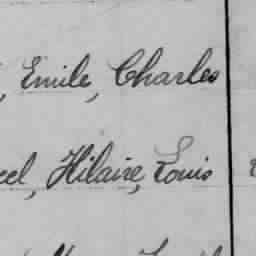 , Emile, Charles
el, Hilaire, Louis